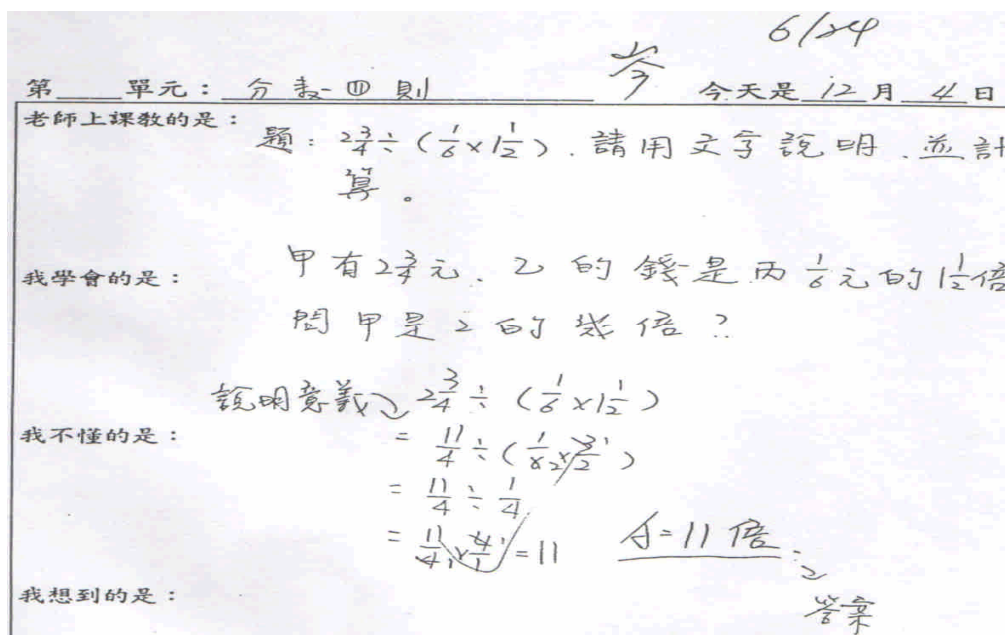 6/24
岑
第 單元：分数四則 今天是 12 月 4 日
老師上課教的是：
題：2 3/4 ÷ (1/6 × 1 1/2). 請用文字說明、並計
算。
我學會的是：
甲有2 3/4元、乙的錢是丙1/6元的1 1/2倍
問甲是乙的幾倍？
說明意義 2 3/4 ÷ (1/6 × 1 1/2)
我不懂的是：
= 11/4 ÷ (1/6 × 3/2)
= 11/4 ÷ 1/4
= 11/4 × 4/1 = 11
A = 11倍
答案
我想到的是：